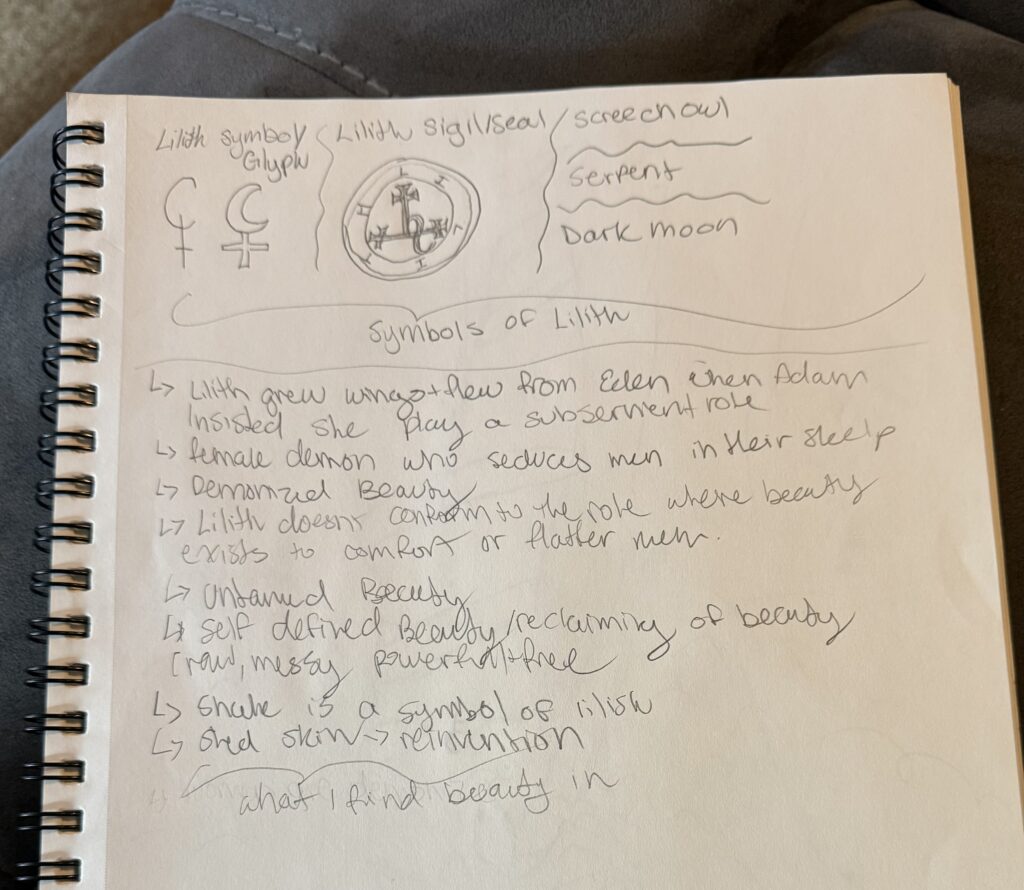 Lilith symbol/
Glyph
Lilith Sigil/Seal
L I L I T H
Screech owl
Serpent
Dark moon
Symbols of Lilith
↳ Lilith grew wings + flew from Eden when Adam
Insisted she play a subservient role
↳ female demon who seduces men in their sleep
↳ Demonized Beauty
↳ Lilith doesn't conform to the role where beauty
exists to comfort or flatter men.
↳ Untamed Beauty
↳ self defined Beauty/reclaiming of beauty
(raw, messy powerful + free
↳ Snake is a symbol of lilith
↳ shed skin → reinvention
what I find beauty in